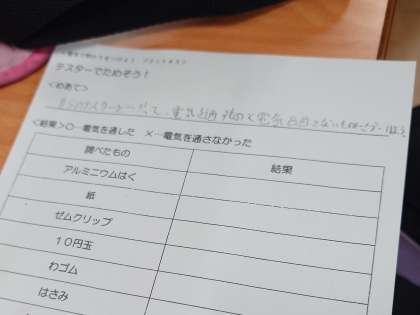 テスターでためそう!
<めあて>
テスターをつかって、電気を通すものと電気を通さないものを
<結果>○…電気を通した ×…電気を通さなかった
調べたもの 結果
アルミニウムはく
紙
ゼムクリップ
10円玉
わゴム
はさみ